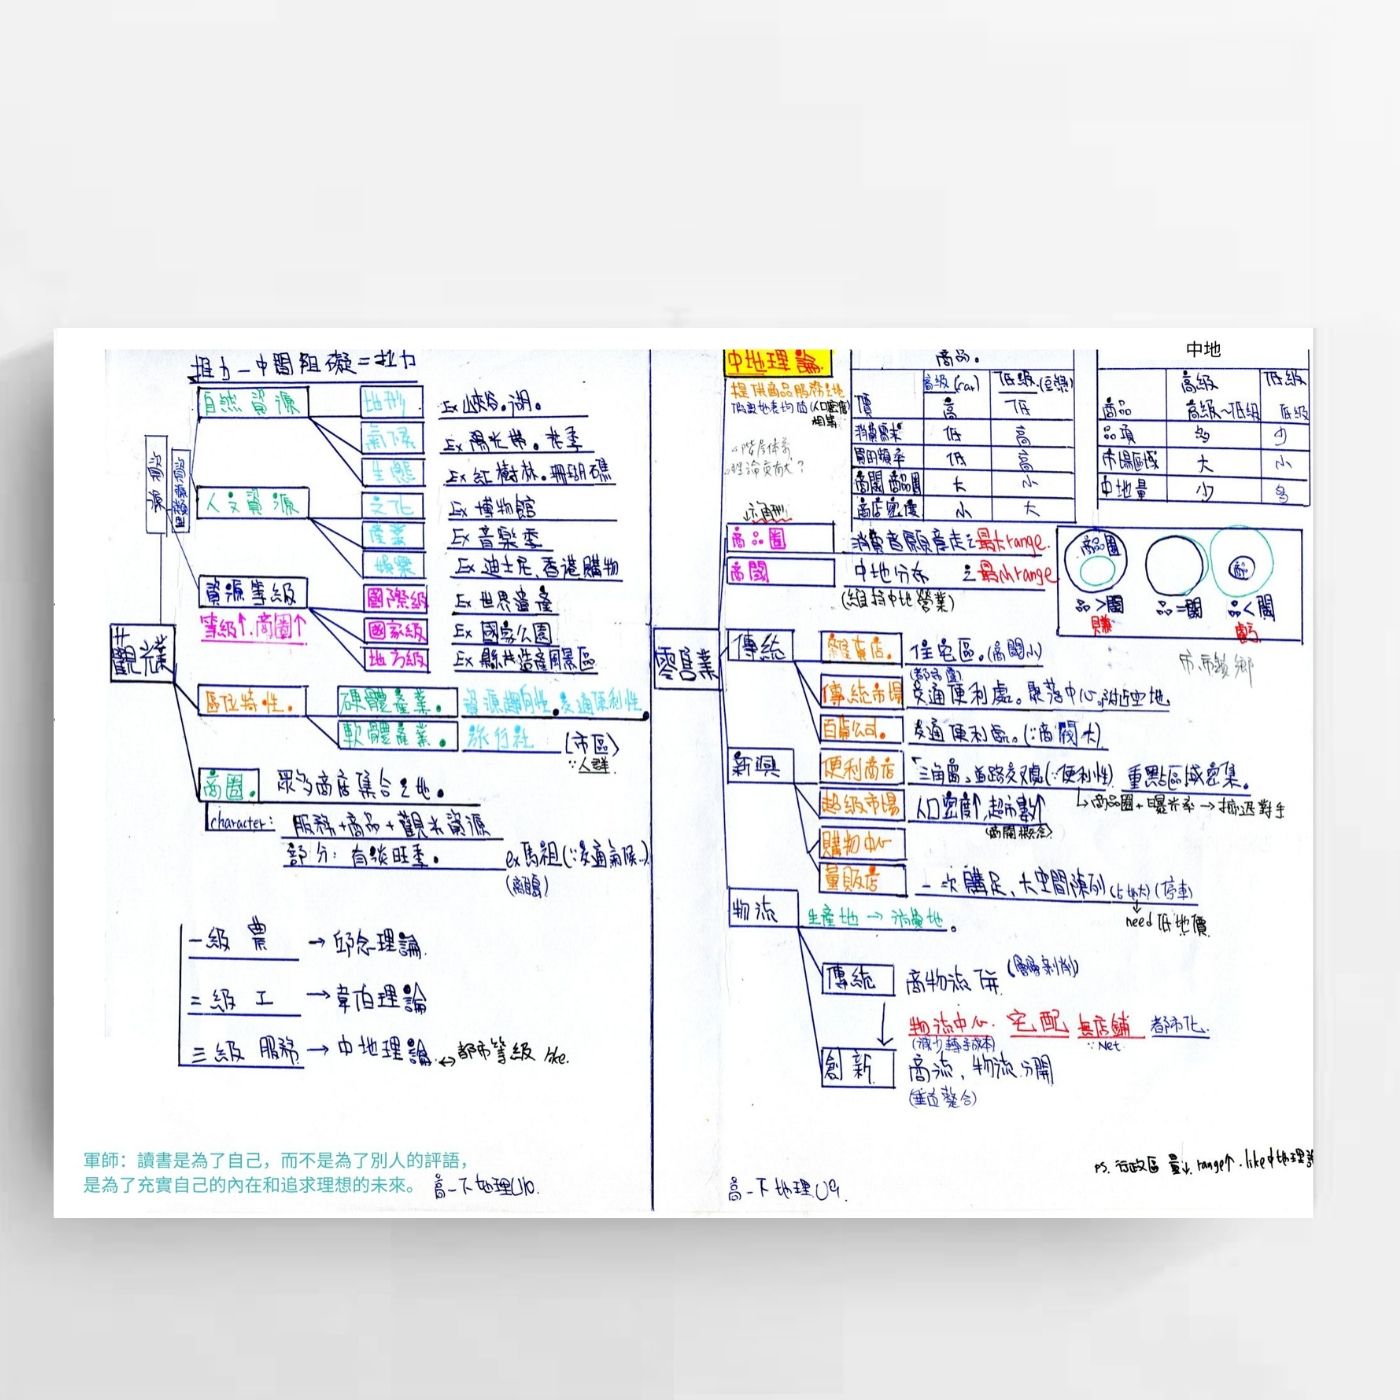 推力-中間阻礙=拉力
觀光業
資源
自然資源
地形
Ex 峽谷。湖。
氣候
Ex 陽光帶。花季
生態
Ex 紅樹林。珊瑚礁
人文資源
文化
Ex 博物館
產業
Ex 音樂季
娛樂
Ex 迪士尼、香港購物
資源等級
等級↑.商圈↑
國際級
Ex 世界遺產
國家級
Ex 國家公園
地方級
Ex 縣共造產風景區
區位特性。
硬體產業。
資源趨向性。交通便利性。
軟體產業。
旅行社
(市區)
∵人群
商圈。
眾多商店集合之地。
character:
服務+商品+觀光資源
部分:有淡旺季。
ex馬祖(∵交通氣候..)
(離島)
一級 農 → 邱念理論
二級 工 → 韋伯理論
三級 服務 → 中地理論↔都市等級 like.
軍師：讀書是為了自己，而不是為了別人的評語，
是為了充實自己的內在和追求理想的未來。
高一下地理U10.
中地理論
提供商品服務之地
商品。
高級(car) 低級(豆漿)
價 高 低
消費需求 低 高
買的頻率 低 高
商閾 商品圈 大 小
商店密度 小 大
中地
高級 低級
商品 高級~低級 低級
品項 多 少
市場區域 大 小
中地量 少 多
商品圈
消費者願意走之最大range.
商閾
中地分布 之最小range
(維持中地營業)
商品圈
品>閾
賺
品=閾
品<閾
虧
市.市鎮鄉
零售業
傳統
雜貨店。
住宅區。(商閾小)
傳統市場
交通便利處。聚落中心.附近空地
百貨公司。
交通便利處。(∵商閾大)
新興
便利商店
三角窗、道路交處(∵便利性) 重點區域密集。
↳商品圈+曝光率→擠退對手
超級市場
人口密度↑,超市數↑
(商閾概念)
購物中心
量販店
一次購足、大空間陳列(占地大)(停車)
need 低地價
物流
生產地 → 消費地。
傳統
商物流併(層層剝削)
物流中心. 宅配 無店鋪 都市化
(減少轉手成本)
∵Net
創新
商流、物流分開
(垂直整合)
ps. 行政區 量↓. range↑. like中地理論
高一下地理U9.